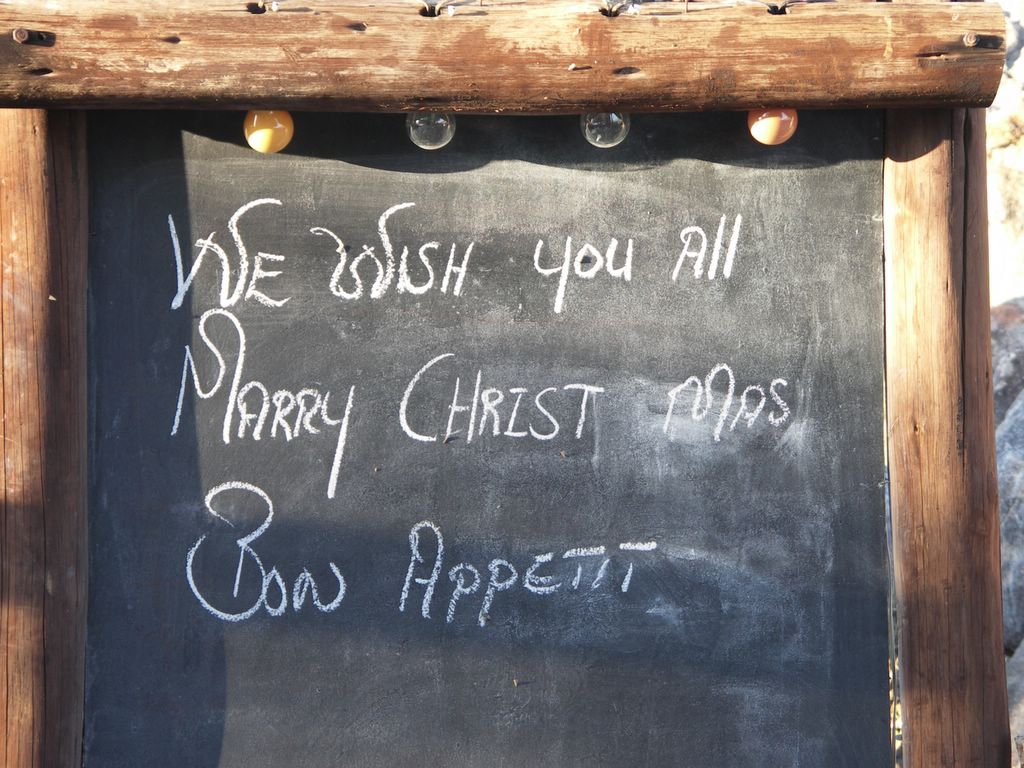 WE WISH you All
MARRY CHRIST MAS
BON APPETIT